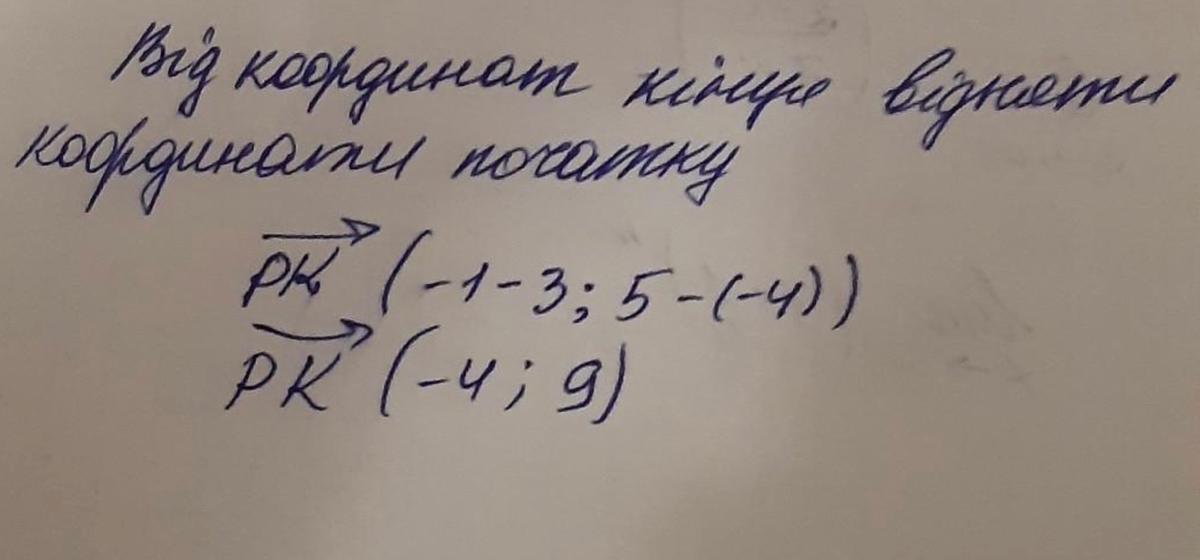 Від координат кінця відняти
координати початку
PK (-1-3; 5-(-4))
PK (-4; 9)